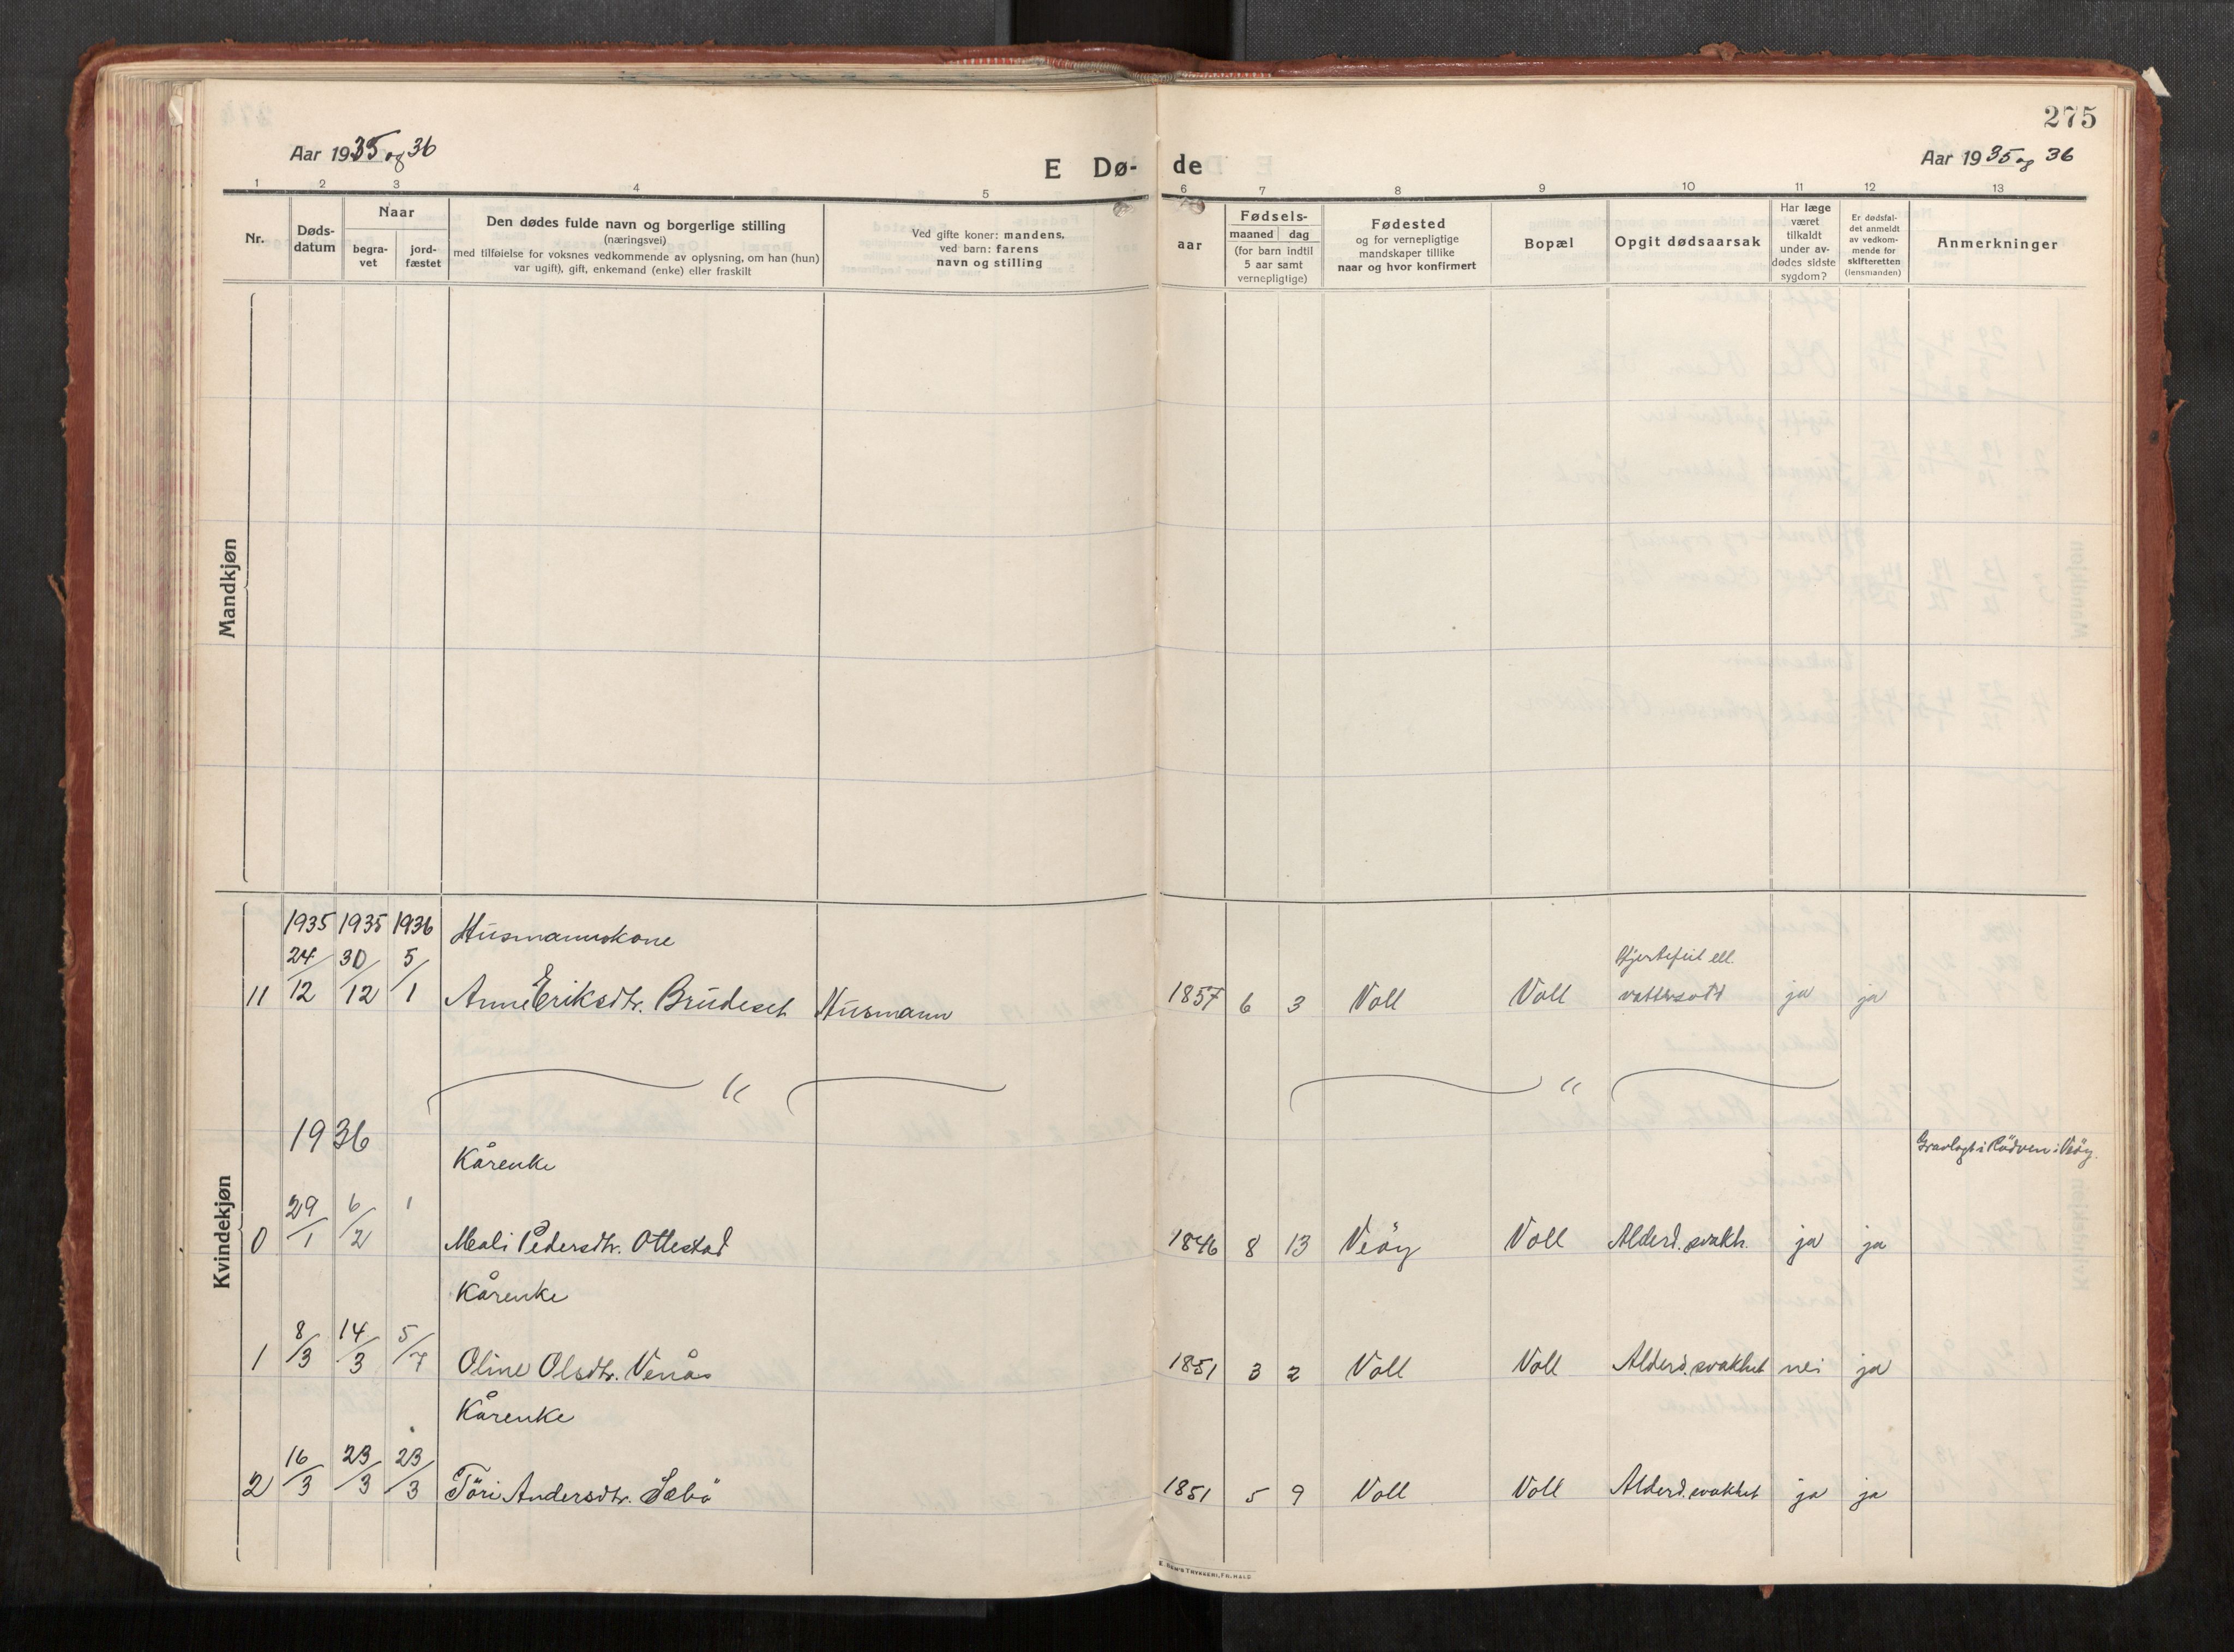 275
Aar 1935 og 36
E Dø-
de
Aar 1935 og 36
1 2 3 4 5 6 7 8 9 10 11 12 13
Nr.
Døds-
datum
Naar
begra-
vet
jord-
fæstet
Den dødes fulde navn og borgerlige stilling
(næringsvei)
med tilføielse for voksnes vedkommende av oplysning, om han (hun)
var ugift), gift, enkemand (enke) eller fraskilt
Ved gifte koner: mandens,
ved barn: farens
navn og stilling
Fødsels-
aar
maaned dag
(for barn indtil
5 aar samt
vernepligtige)
Fødested
og for vernepligtige
mandskaper tillike
naar og hvor konfirmert
Bopæl
Opgit dødsaarsak
Har læge
været
tilkaldt
under av-
dødes sidste
sygdom?
Er dødsfal-
det anmeldt
av vedkom-
mende for
skifteretten
(lensmanden)
Anmerkninger
Mandkjøn
Kvindekjøn
1935 1935 1936 Husmannskone
24/12 30/12 5/1
Hjertefeil ell.
11 Anne Eriksdtr. Brudeset Husmann 1857 6 3 Voll Voll vattersott ja ja
" "
1936
Kårenke
Gravlagt i Rödven i Veöy.
0 29/1 6/2 1 Mali Pedersdtr. Ottestad 1846 8 13 Veöy Voll Alderd. svakh. ja ja
Kårenke
1 8/3 14/3 5/7 Oline Olsdtr. Venås 1851 3 2 Voll Voll Alderd. svakhet nei ja
Kårenke
2 16/3 23/3 23/3 Töri Andersdtr. Sæbö 1851 5 9 Voll Voll Alderd. svakhet ja ja